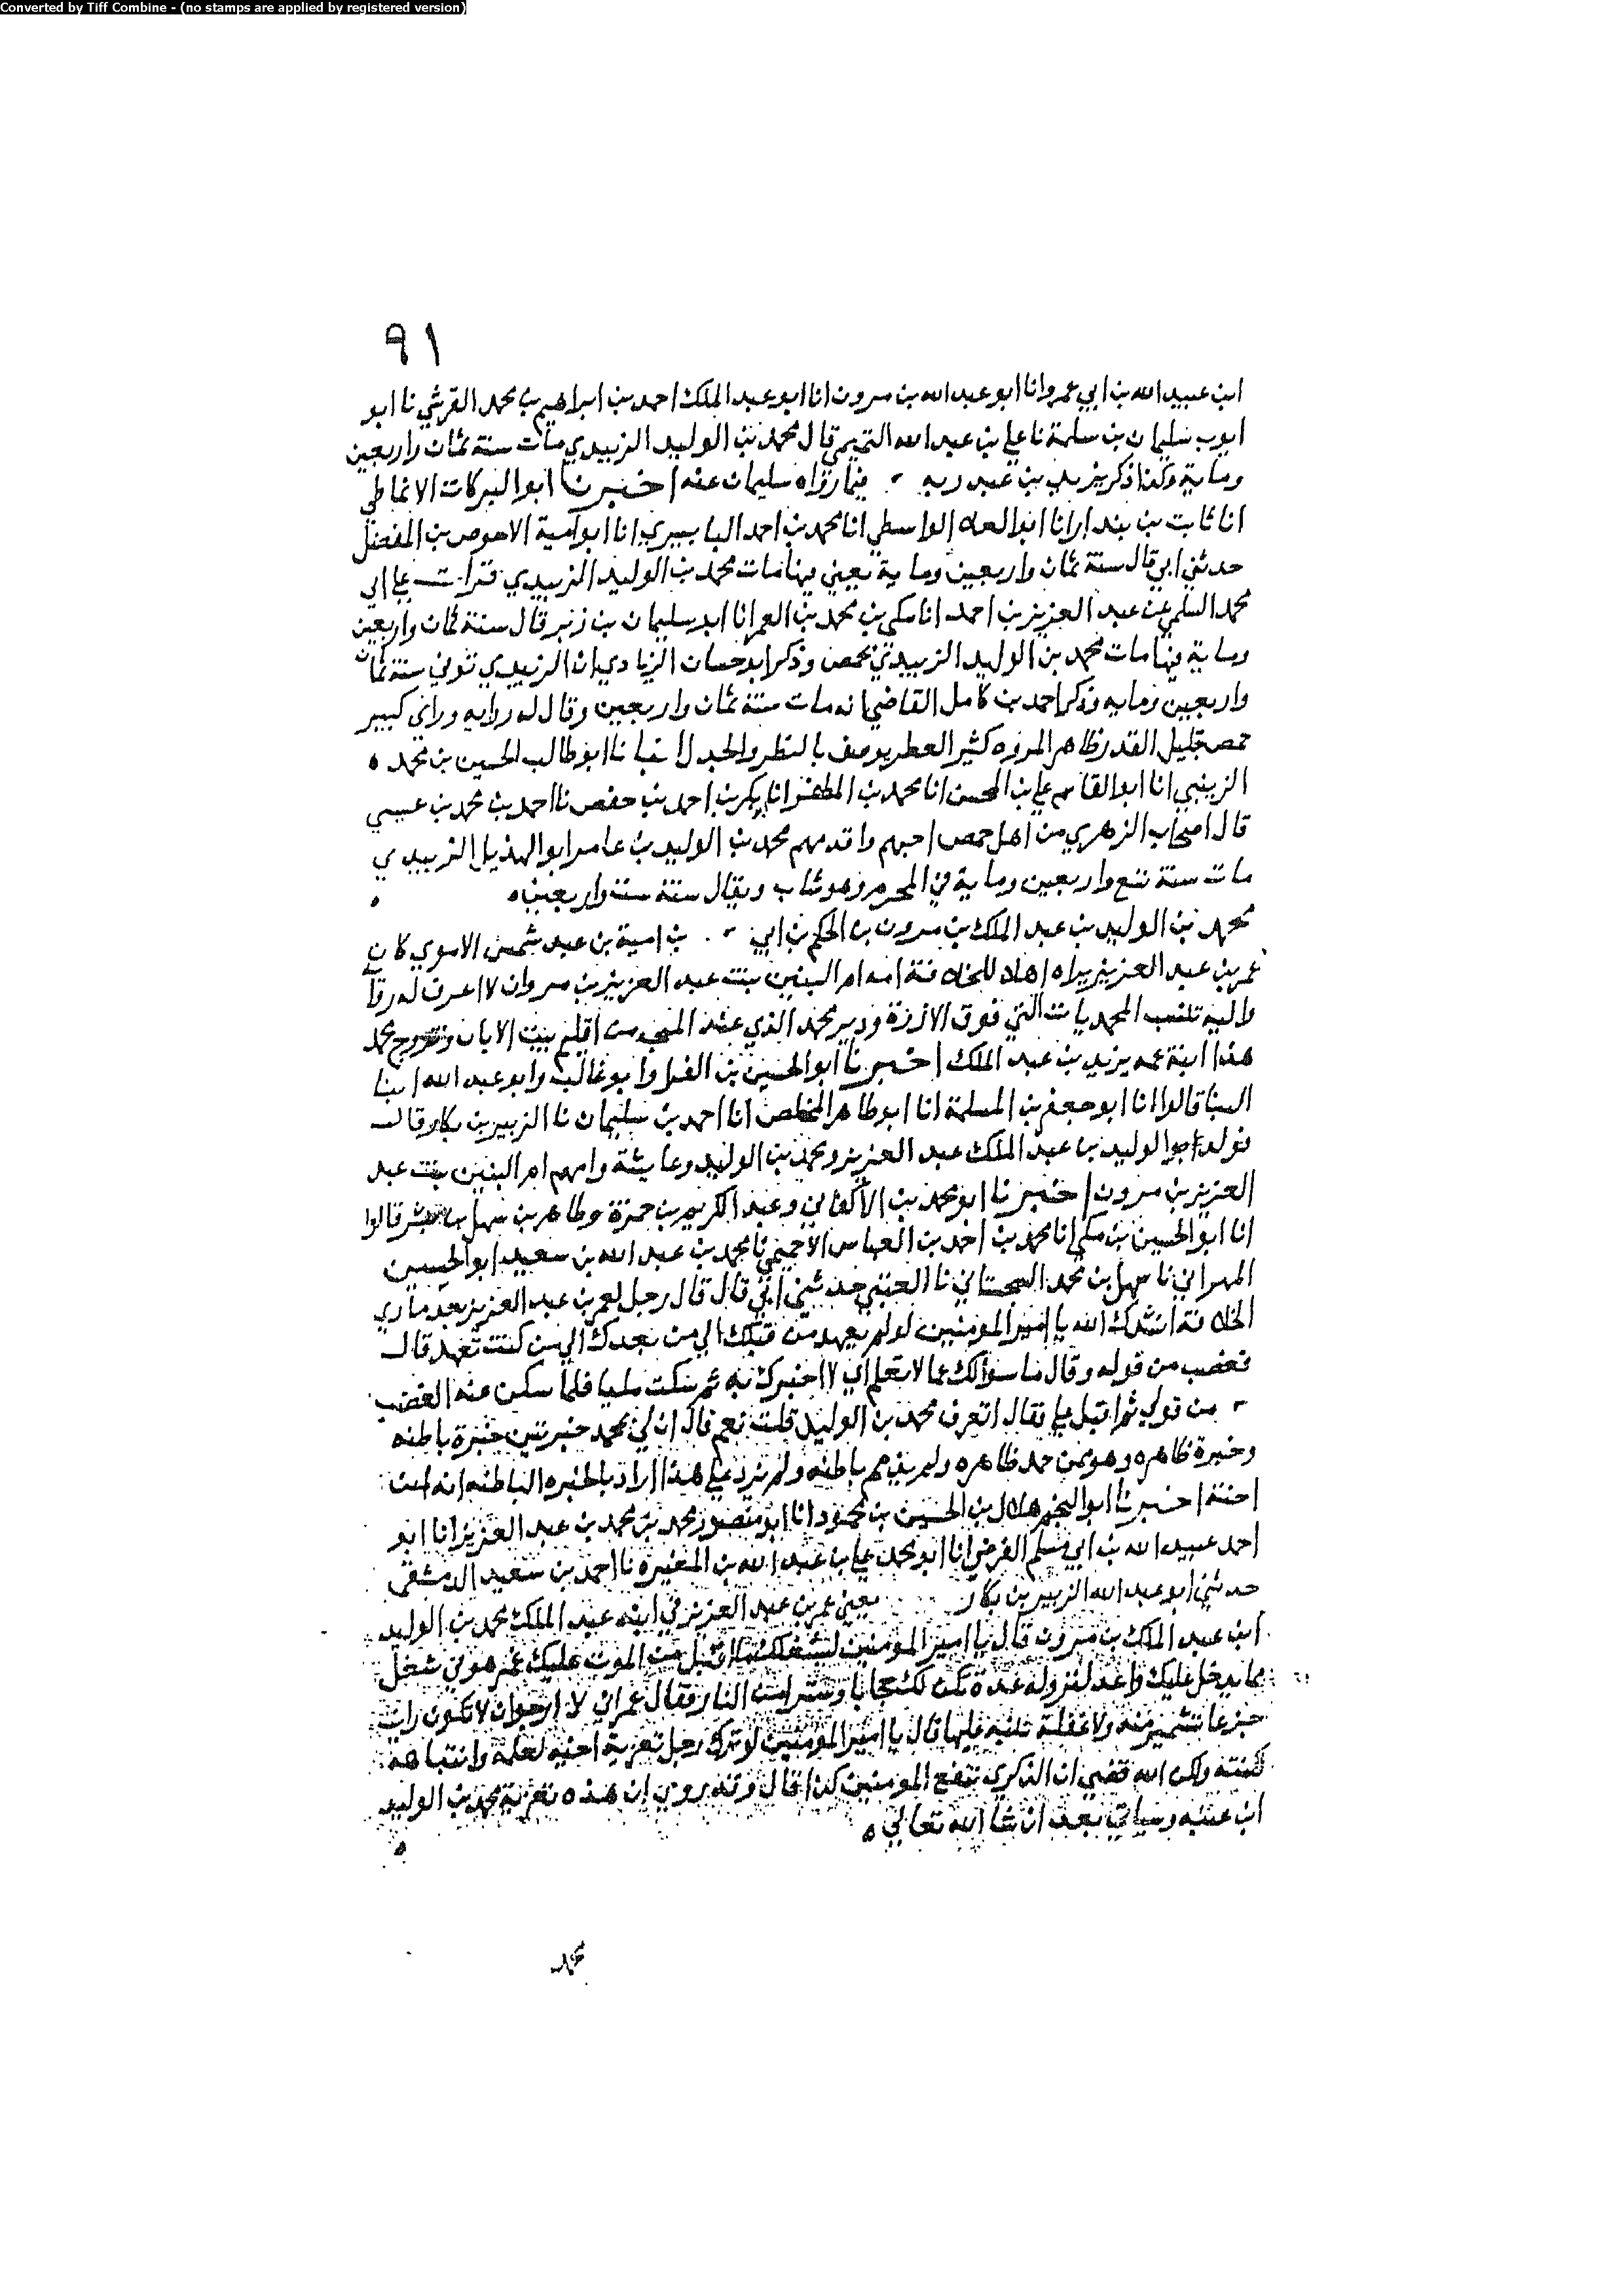 Converted by Tiff Combine - (no stamps are applied by registered version)
٩١
ابن عبيد الله بن ابي عمروانا ابو عبد الله بن مرون انا ابو عبد الملك احمد بن ابراهيم بن محمد القرشي نا ابو
ايوب سليمان بن سلمة نا علي بن عبد الله التميمي قال محمد بن الوليد الزبيدي مات سنة ثمان واربعين
وماية وكذا ذكر يزيد بن عبد ربه فيما رواه سليمان عنه اخبرنا ابو البركات الانماطي
انا ثابت بن بندار انا ابو العلا الواسطي انا محمد بن احمد البابسيري انا ابو امية الاحوص بن المفضل
حدثني ابي قال سنة ثمان واربعين وماية يعني فيها مات محمد بن الوليد الزبيدي قرات علي ابي
محمد السلمي عن عبد العزيز بن احمد انا مكي بن محمد بن الغمر انا ابو سليمان بن زبر قال سنة ثمان واربعين
وماية فيها مات محمد بن الوليد الزبيدي بحمص وذكر ابو حسان الزيادي ان الزبيدي توفي سنة ثمان
واربعين وماية وذكر احمد بن كامل القاضي انه مات سنة ثمان واربعين وقال له روايه وراي كبير
حمص جليل القدر ظاهر المروه كثير العطر يوصف بالنظر والجدل انبانا ابو طالب الحسين بن محمد ه
الزينبي انا ابو القاسم علي بن المحسن انا محمد بن المظفر انا بكر بن احمد بن حفص نا احمد بن محمد بن عيسي
قال اصحاب الزهري من اهل حمص احبهم واقدمهم محمد بن الوليد بن عامر ابو الهذيل الزبيدي
مات سنة تسع واربعين وماية في المحرم وهو شاب ويقال سنة ست واربعين ه
محمد بن الوليد بن عبد الملك بن مرون بن الحكم بن ابي بن امية بن عبد شمس الاموي كان
عمر بن عبد العزيز يراه اهلا للخلافة امه ام البنين بنت عبد العزيز بن مروان لا اعرف له روا
واليه تنسب المحمديات التي فوق الارزة ودير محمد الذي عند المنيحه من اقليم بيت الابار وتزوج محمد
هذا ابنة عمه يزيد بن عبد الملك اخبرنا ابو الحسين بن الفرا وابو غالب وابو عبد الله ابنا
البنا قالوا انا ابو جعفر بن المسلمة انا ابو طاهر المخلص انا احمد بن سليمان نا الزبير بن بكار قال
فولد الوليد بن عبد الملك عبد العزيز ومحمد بن الوليد وعايشة وامهم ام البنين بنت عبد
العزيز بن مرون اخبرنا ابو محمد بن الاكفاني وعبد الكريم بن حمزة وطاهر بن سهل بن بشر قالوا
انا ابو الحسين بن مكي انا محمد بن احمد بن العباس الاخميمي نا محمد بن عبد الله بن سعيد ابو الحسين
المهراني نا سهل بن محمد السجستاني نا العتبي حدثني ابي قال قال رجل لعمر بن عبد العزيز بعد ما ري
الخلافة انشدك الله يا امير المومنين لو لم يعهد من قبلك الي من بعدك الي من كنت تعهد قال
فغضب من قوله وقال ما سوالك عما لا تعلم اني لا اخبرك به ثم سكت مليا فلما سكن عنه الغضب
من قولي ثم اقبل علي فقال اتعرف محمد بن الوليد قلت نعم قال ان لي بمحمد خبرتين خبرة باطنه
وخبرة ظاهره وهو ممن حمد ظاهره ولم يذمم باطنه ولم يزد علي هذا اراد بالخبره الباطنه انه ابن
اخته اخبرنا ابو النجم هلال بن الحسين بن محمود انا ابو منصور محمد بن محمد بن عبد العزيز انا ابو
احمد عبيد الله بن ابي مسلم الفرضي انا ابو محمد علي بن عبد الله بن المغيره نا احمد بن سعيد الدمشقي
حدثني ابو عبد الله الزبير بن بكار يعني عمر بن عبد العزيز في ابنه عبد الملك محمد بن الوليد
ابن عبد الملك بن مرون قال يا امير المومنين ليشغلك ما اقبل من الموت عليك عمن هو في شغل
مما يدخل عليك واعد لنزوله عدة تكن لك حجابا وسترا من النار فقال عمر اني لا ارجوان لا تكون رايت
جزعا تشمئز منه ولا غفلة تنبه عليها قال يا امير المومنين لو ترك رجل تعزية اخيه لعلمه وانتباهه
لكنته ولكن الله قضي ان الذكري تنفع المومنين كذا قال وقد روي ان هذه تعزية محمد بن الوليد
ابن عتبه وسياتي بعد ان شا الله تعالي ه
محمد